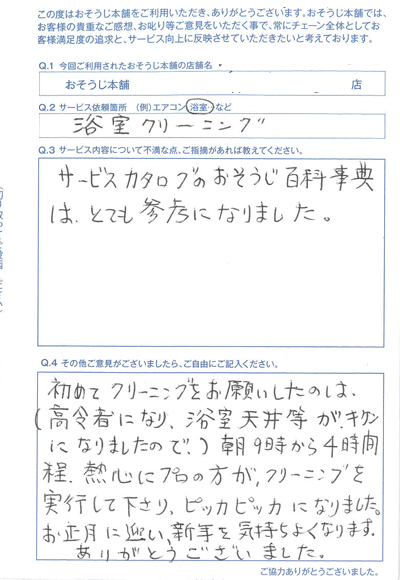 この度はおそうじ本舗をご利用いただき、ありがとうございます。おそうじ本舗では、
お客様の貴重なご感想、お叱り等ご意見をいただく事で、常にチェーン全体としてお
客様満足度の追求と、サービス向上に反映させていただきたいと考えております。
Q.1 今回ご利用されたおそうじ本舗の店舗名
おそうじ本舗 店
Q.2 サービス依頼箇所 (例)エアコン、浴室など
浴室クリーニング
Q.3 サービス内容について不満な点、ご指摘があれば教えてください。
サービスカタログのおそうじ百科事典
は、とても参考になりました。
Q.4 その他ご意見がございましたら、ご自由にご記入ください。
初めてクリーニングをお願いしたのは、
(高令者になり、浴室天井等が、キケン
になりましたので、)朝9時から4時間
程、熱心にプロの方が、クリーニングを
実行して下さり、ピッカピッカになりました。
お正月に迎い、新年を気持ちよくなります。
ありがとうございました。
ご協力ありがとうございました。